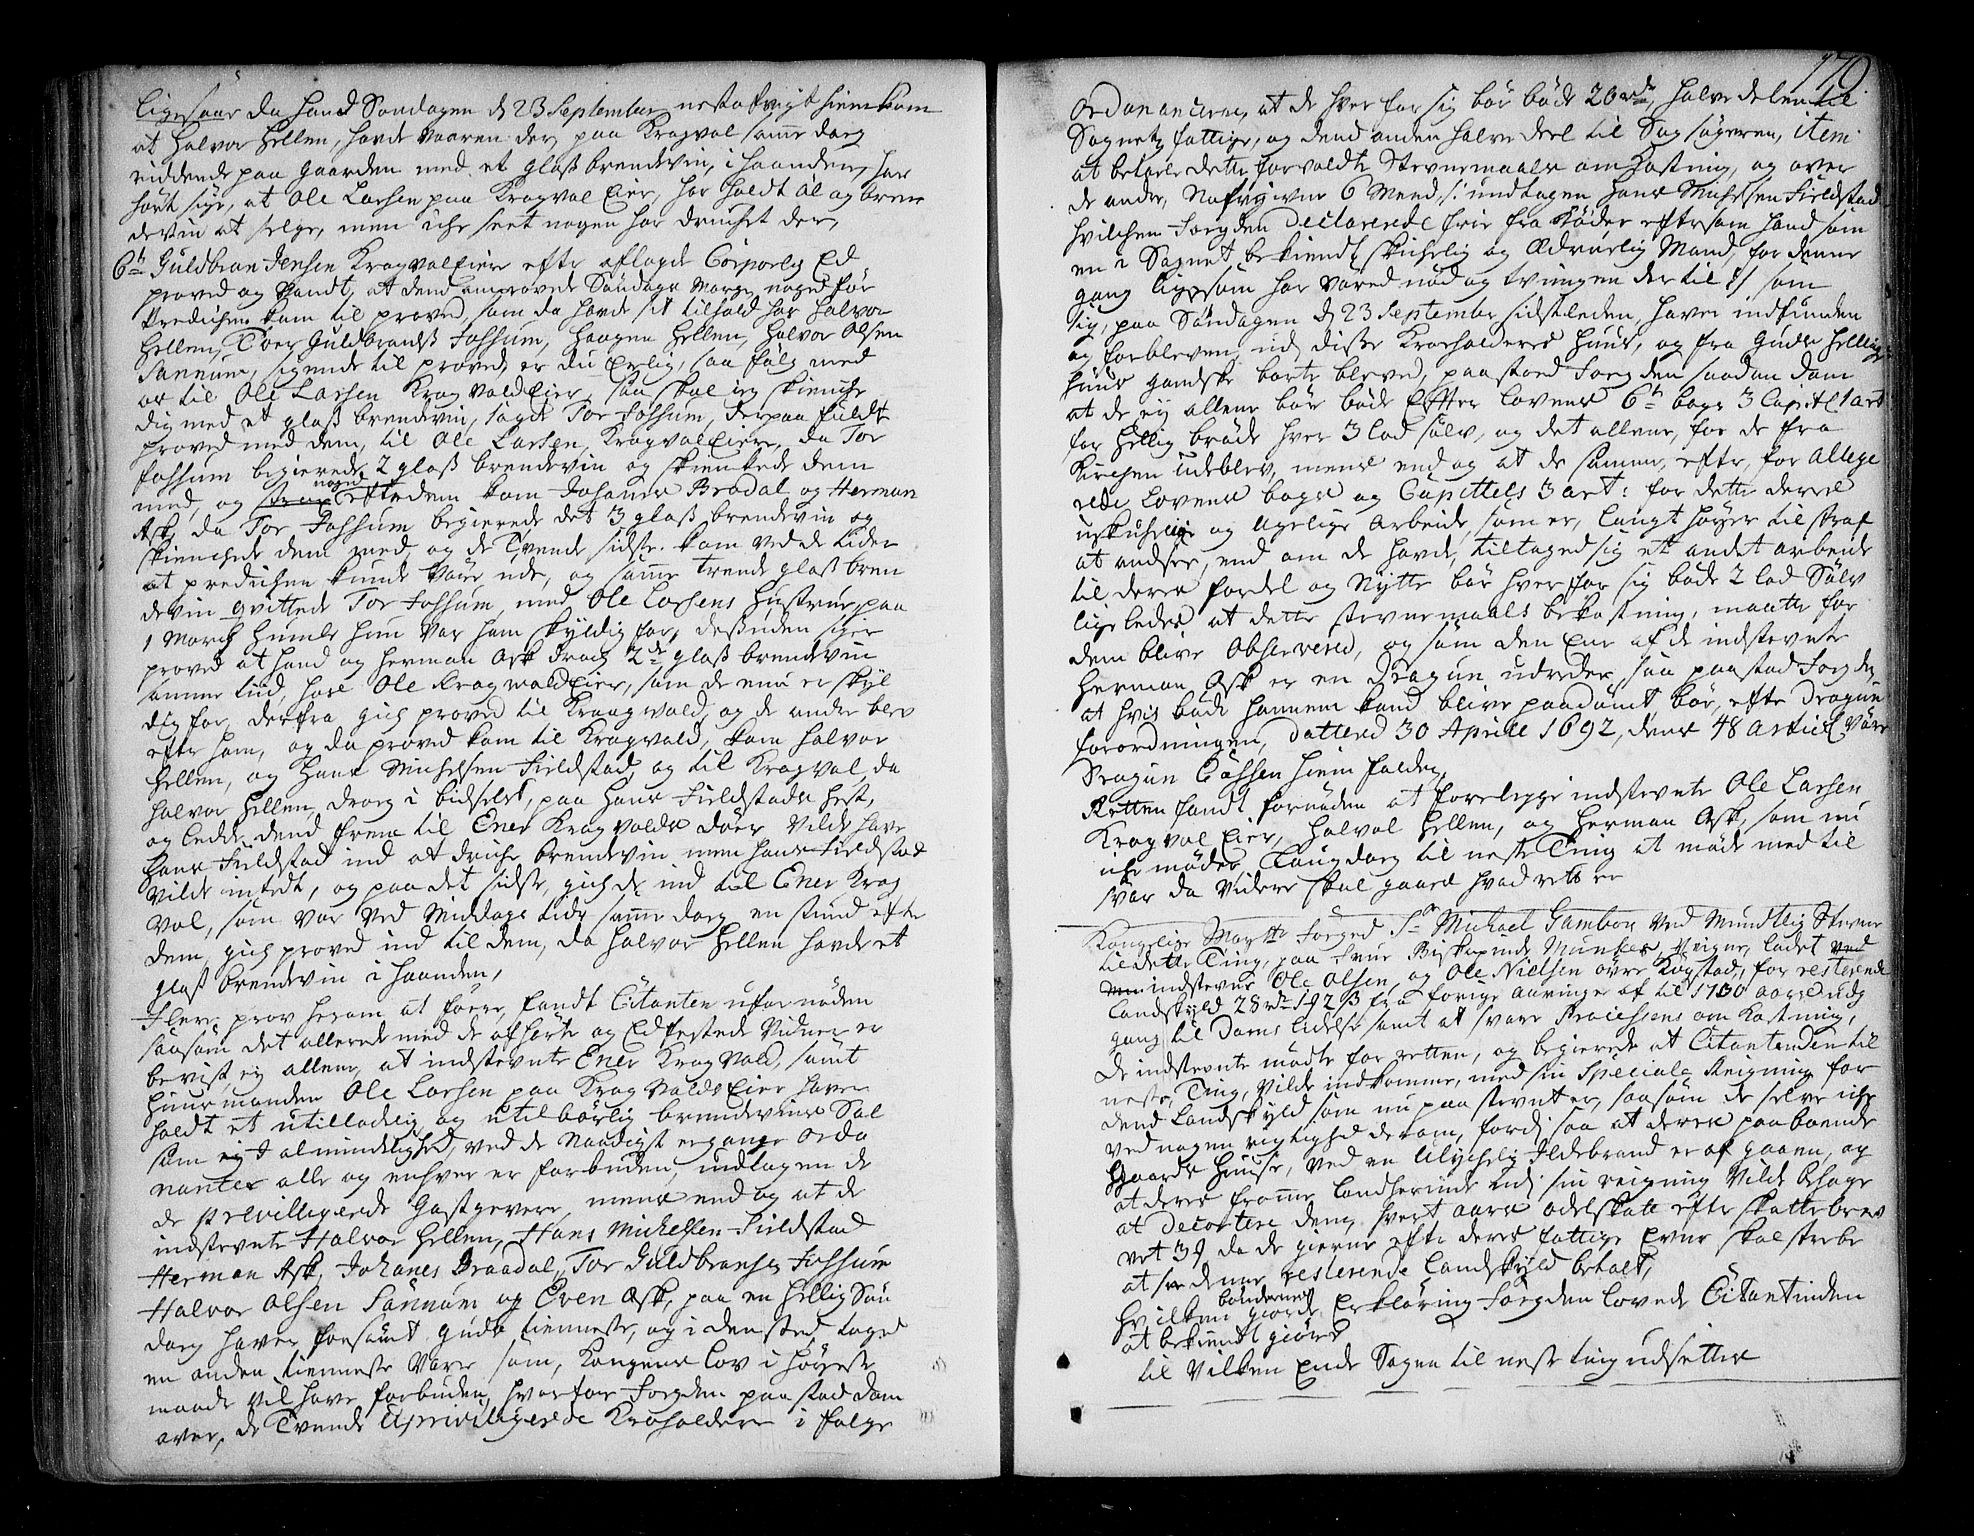 ligesaar da hand Søndagen d 23 September nestafvigt hiem kom
at Halvor Hellen, hafde vaaren der paa Kragval samme dag
riddende paa gaarden med et glass brendevin, i haanden, har
hørt sige, at Ole Larsen paa Kragval Eier, har holdt øl og bren
devin at selge, men iche seet nogen har druchet der,
6te Guldbran Jensen Kragvaleier efter aflagde Corporlig Eed
proved og vandt, at dend omprovede Søndags Morgen noged før
Predichen kom til proved, som da hafde sit tilhold hos Halvor
Hellen, Toer Guldbrandss Fossum, Haagen Hellen, Halvor Olsen
Sannum, sigende til proved, er du Eerlig, saa følg med
os til Ole Larsen Kragvaldeier, saa skal ieg skienche
dig med et glass brendevin, sagde Tor Fossum, derpaa fuldt
proved med dem, til Ole Larsen, Kragvaleier, da Tor
Fossum begierede 2 glass brendevin og skienkede dem
med, og noged efter dem kom Johanes Bradal og Herman
Ask, da Tor Fossum begierede det 3 glass brendevin og
skienchede dem med, og de tvende sidste kom ved de tider
at predichen kunde være ude, og samme trende glass bren
devin qvittede Tor Fossum med Ole Larsens Hustrue paa
1 March humle hun var ham skyldig for, dessuden siger
proved at hand og Herman Ask drach 2de glass brendevin
samme tiid, hos Ole Kragwaldeier, som de enu er skyl
dig for, derfra gich proved til Kraagwald, og de andre blev
efter ham, og da proved kom til Kragvald, kom Halvor
Hellen, og Hans Michelsen Fieldstad, og til Kragval, da
Halvor Hellen, drog i bidselet, paa Hans Fieldstads hest,
og ledde dend frem til Ener Kragvolds døer, vilde have
Hans Fieldstad ind at driche brendevin, men Hans Fieldstad
vilde intedt, og paa det sidste, gich de ind til Ener Krag
val, som var ved Middags tide samme dag, en stund efter
dem, gich proved ind til dem, da Halvor Hellen hafde et
glass brendevin i haanden,
Flere prov herom at føere, fandt Citanten ufornøden
saasom det allerede med de afhørte og Eedfestede Vidner er
bevist, ey allene, at indstevnte Ener Kragvald, samt
Huusmanden Ole Larsen paa Kragvalds Eier, haver
holdt et utilladelig og utilbørlig brendeviins Sal
som ey I almindelighed, ved de Naadigst ergangne Orda
nantzer alle og enhver er forbuden, undtagen de
de privilligerede Gastgevere, mens end og at de
indstevnte Halvor Hellen, Hans Michelsen Fieldstad
Herman Ask, Johanes Braadal, Tor Guldbransen Fossum
Halvor Olsen Sannum og Even Ask, paa en hellig Søn
dag haver forsømt Guds tienneste, og i den sted taged
en anden tienneste vare, som, Kongens Lov i høyeste
maade vil have forbuden, hvorfor Fogden paastod dom
over, de Tvende Upriviligerede Kroholdere i følge
170
Ordonancerne, at de hver for sig bør bøde 20 rdr, halve delen til
Sognets fattige, og dend anden halve deel til Sagsøgeren, item
at betale dette forvoldte Stevnemaals omkosting, og over
de andre, Nafngivne 6 Mend /: undtagen Hans Michelsen Fieldstad
hvilchen Fogden declarerede frie fra bøder eftersom hand som
en i Sognet bekiendt skichelig og Ædruelig Mand, for denne
gang ligesom har vored nød og tvungen der til :/ som
sig, paa Søndagen d 23 September sidstleden, haver indfunden
og forbleven, udi disse Kroeholderes huus, og fra Guds hellige
huus gandske borte bleved, paastoed Fogden saadan dom
at de ey allene bør bøde Efter Lovens 6te bogs 3 Capitel 1 art
for hellig brøde hver 3 lod sølv, og det allene, for de fra
Kirchen udeblev, mens end og at de samme, efter, for allege
rede Lovens bogs og Capittels 3 art: for dette deres
uskichelige og Ugelige Arbeide, som er, langt høyer til straf
at andsee, end om de hafde, tiltaged sig et andet arbeide
til deres fordel og Nytte bør hver for sig bøde 2 lod Sølv
ligeledes at dette stevnemaals bekostning, maatte for
dem blive Observered, og som den Ene af de indstevnte
Herman Ask er en Dragun udreder, saa paastod Fogden
at hvis bøde hannem kand blive paadømt bør, efter Dragun
forordningen, datterd 30 Aprill 1692, dens 48 articl være
Dragun Cassen hiemfalden,
Retten fandt fornøden at forelegge indstevnte Ole Larsen
Kragval Eier, Halvol Hellen, og Herman Ask, som nu
iche møder, Laugdag til neste Ting at møde med til
svar da videre skal gaaes hvad rett er
Kongelige Maytts Foged Sr Michael Gamborg ved Mundtlig Stevne
til dette Ting, paa Frue Biskopinde Munkes, Veigne, ladet
indstevne Ole Olsen, og Ole Nielsen øvre Kogstad, for resterende
Landskyld 28 rdr 1 92 ß fra forige Aaringer af til 1700 aars udg
gang til Doms lidelse samt at svare Processens omkostning,
De indstevnte møtte for retten, og begierede at Citantinden til
neste, Ting, vilde indkomme, med sin Speciale Reigning for
dend Landskyld som nu paastevnt er, saasom de selve iche
ved nogen rigtighed derom, fordi saa at deres paaboende
Gaards Huuse, ved en Ulychelig Ildebrand er af gaaen, og
at deres fromme Landherinde udi sin reigning vilde behage
at Decortere dem, hvert Aars odelskatt efter skattebre
vet 39 da de gierne efter deres fattige Evne skal strebe
at see denne resterende Landskyld betalt,
hvilken bøndernes giorde Erklæring Fogden lovede Citantinden
at bekiendtgiøre
til Vilken Ende Sagen til neste ting udsettes